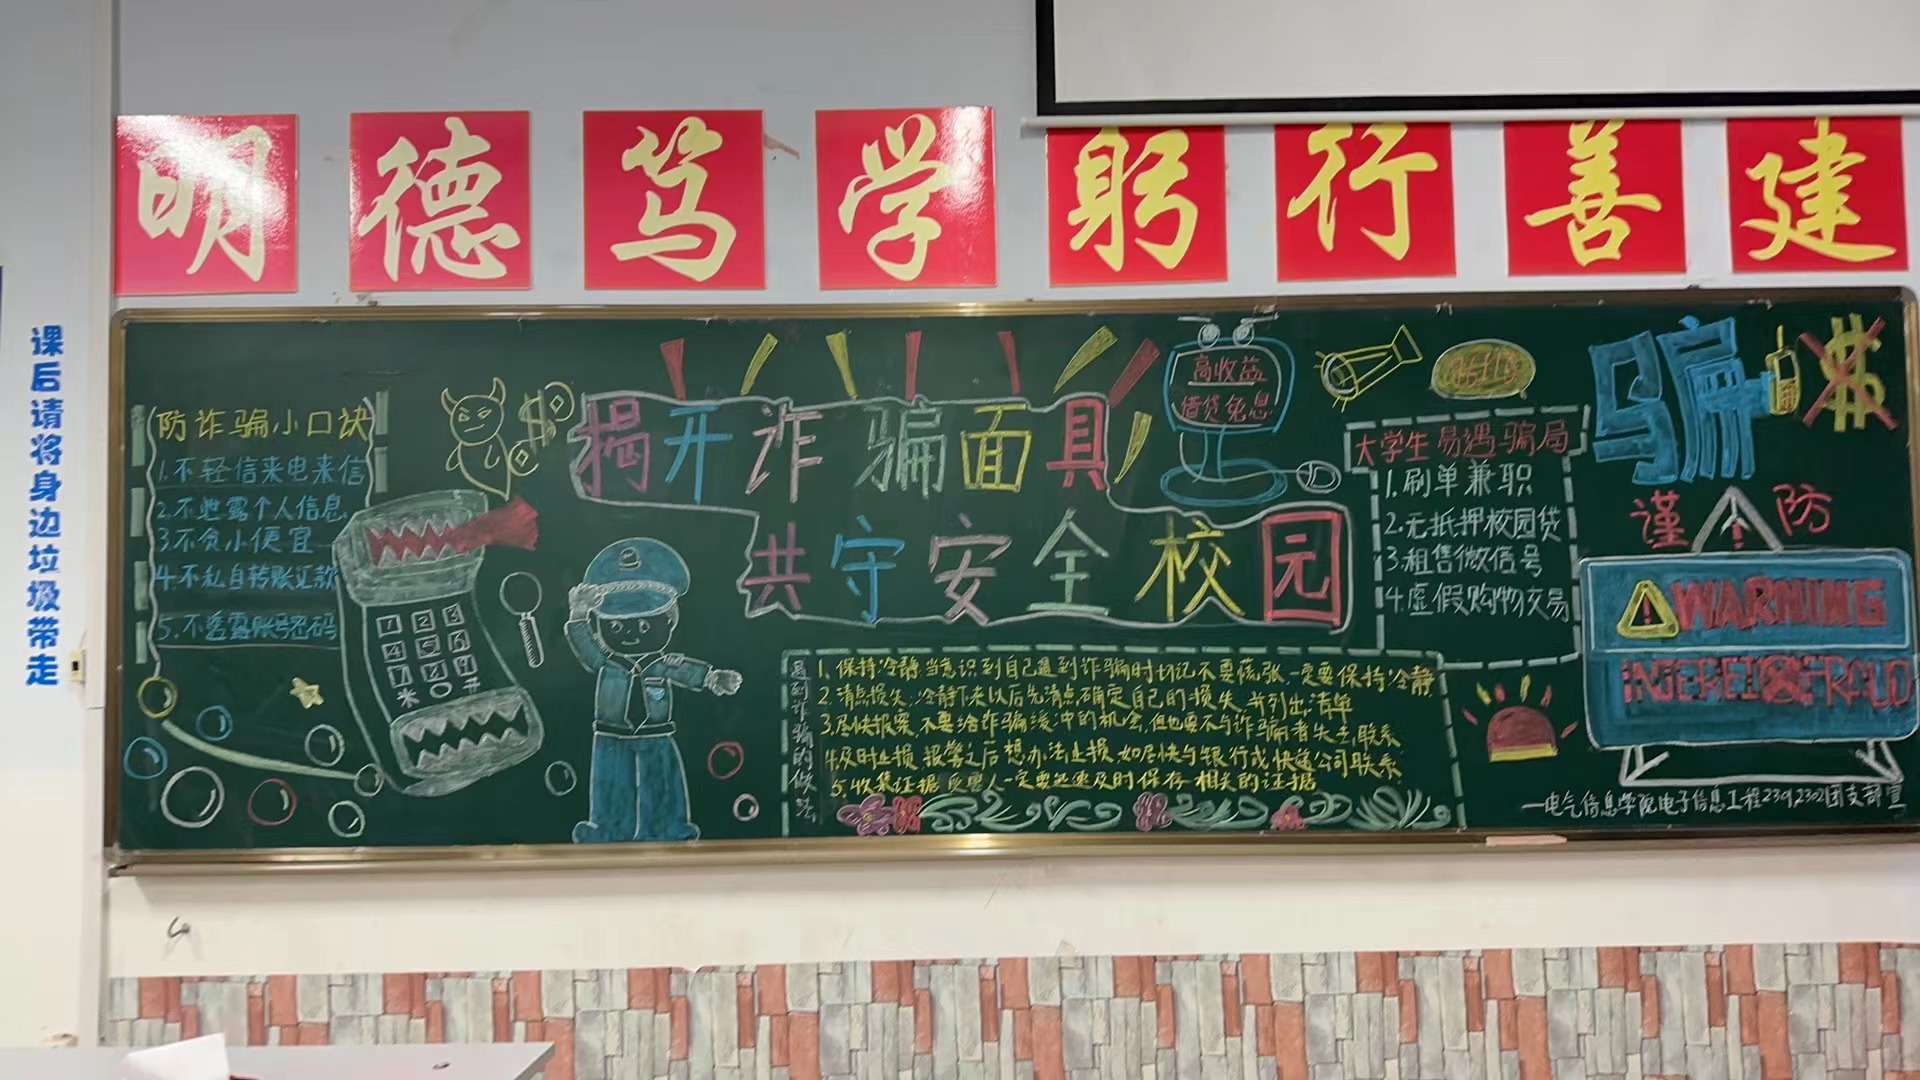 明德笃学躬行善建
课后请将身边垃圾带走
防诈骗小口诀
1.不轻信来电来信
2.不泄露个人信息
3.不贪小便宜
4.不私自转账汇款
5.不透露账号密码
1 2 3
4 5 6
7 8 9
* 0 #
揭开诈骗面具
共守安全校园
高收益
借贷免息
大学生易遇骗局
1.刷单兼职
2.无抵押校园贷
3.租售微信号
4.虚假购物交易
骗
谨防
WARNING
INTERET FRAUD
遇到诈骗的做法
1.保持冷静:当意识到自己遇到诈骗时切记不要慌张,一定要保持冷静
2.清点损失:冷静下来以后先清点,确定自己的损失,并列出清单
3.尽快报案,不要给诈骗缓冲的机会,但也要不与诈骗者失去联系
4.及时止损,报警之后想办法止损,如尽快与银行或快递公司联系
5.收集证据,受害人一定要迅速及时保存相关的证据
—电气信息学院电子信息工程2301,2302团支部宣